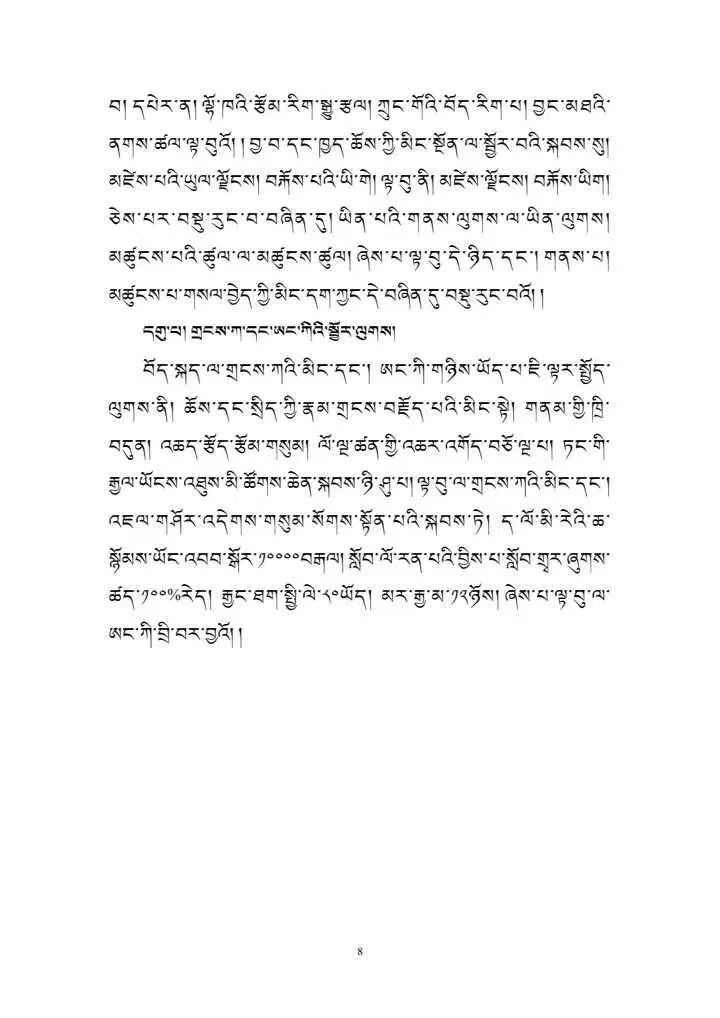 བ། དཔེར་ན། ལྷོ་ཁའི་རྩོམ་རིག་སྒྱུ་རྩལ། ཀྲུང་གོའི་བོད་རིག་པ། བྱང་མཐའི་
ནགས་ཚལ་ལྟ་བུའོ། ། བྱ་བ་དང་ཁྱད་ཆོས་ཀྱི་མིང་སྔོན་ལ་སྦྱོར་བའི་སྐབས་སུ།
མཛེས་པའི་ཡུལ་ལྗོངས། བརྐོས་པའི་ཡི་གེ། ལྟ་བུ་ནི། མཛེས་ལྗོངས། བརྐོས་ཡིག།
ཅེས་པར་བསྡུ་རུང་བ་བཞིན་དུ། ཡིན་པའི་གནས་ལུགས་ལ་ཡིན་ལུགས།
མཚུངས་པའི་ཚུལ་ལ་མཚུངས་ཚུལ། ཞེས་པ་ལྟ་བུ་དེ་ཉིད་དང་། གནས་པ།
མཚུངས་པ་གསལ་བྱེད་ཀྱི་མིང་དག་ཀྱང་དེ་བཞིན་དུ་བསྡུ་རུང་བའོ། །
དགུ་པ། གྲངས་ཀ་དང་ཨང་ཀིའི་སྦྱོར་ལུགས།
བོད་སྐད་ལ་གྲངས་ཀའི་མིང་དང་། ཨང་ཀི་གཉིས་ཡོད་པ་ཇི་ལྟར་སྤྱོད་
ལུགས་ནི། ཆོས་དང་སྲིད་ཀྱི་རྣམ་གྲངས་བརྗོད་པའི་མིང་སྟེ། གནམ་གྱི་ཁྲི་
བདུན། འཆད་རྩོད་རྩོམ་གསུམ། ལོ་ལྔ་ཚན་གྱི་འཆར་འགོད་བཅོ་ལྔ་པ། ཏང་གི་
རྒྱལ་ཡོངས་འཐུས་མི་ཚོགས་ཆེན་སྐབས་ཉི་ཤུ་པ། ལྟ་བུ་ལ་གྲངས་ཀའི་མིང་དང་།
འཇལ་གཤོར་འདེགས་གསུམ་སོགས་སྟོན་པའི་སྐབས་ཏེ། ད་ལོ་མི་རེའི་ཆ་
སྙོམས་ཡོང་འབབ་སྒོར་༡༠༠༠༠བརྒལ། སློབ་ལོ་རན་པའི་བྱིས་པ་སློབ་གྲྭར་ཞུགས་
ཚད་༡༠༠%རེད། རྒྱང་ཐག་སྤྱི་ལེ་༨༠ཡོད། མར་རྒྱ་མ་༡༢ཉོས། ཞེས་པ་ལྟ་བུ་ལ་
ཨང་ཀི་བྲི་བར་བྱའོ། །
8